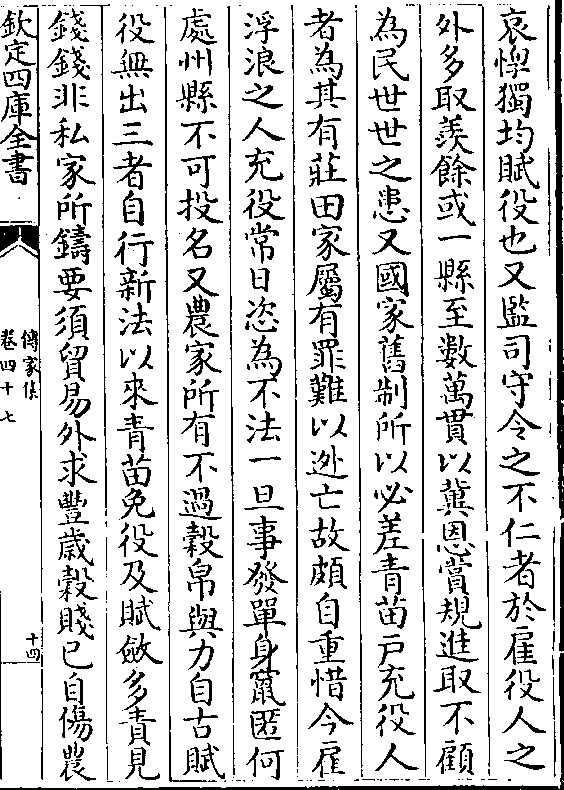 哀惸獨均賦役也又監司守令之不仁者於雇役人之
外多取羨餘或一縣至數萬貫以冀恩賞規進取不顧
為民世世之患又國家舊制所以必差青苗戶充役人
者為其有莊田家屬有罪難以迯亡故頗自重惜今雇
浮浪之人充役常日恣為不法一旦事發單身竄匿何
處州縣不可投名又農家所有不過穀帛與力自古賦
役無出三者自行新法以來青苗免役及賦斂多責見
錢錢非私家所鑄要須貿易外求豐歲穀賤已自傷農
欽定四庫全書
傳家集
卷四十七
十四